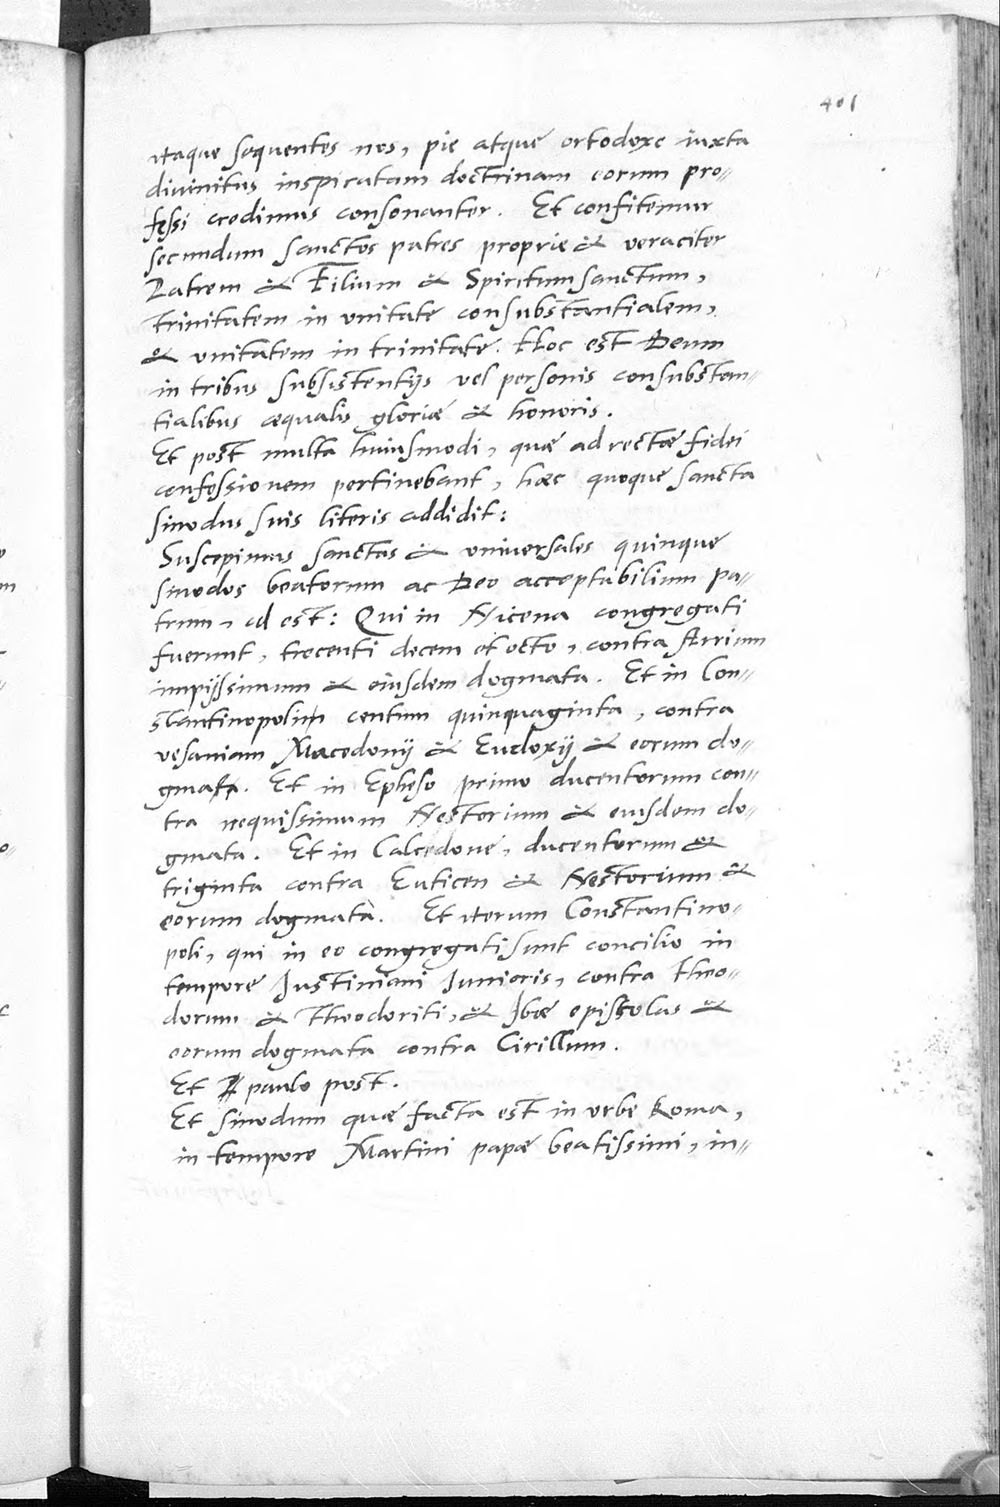 401
itaque sequentes nos, pie atque ortodoxe iuxta
divinitus inspiratam doctrinam eorum pro=
fessi credimus consonanter. Et confitemur
secundum sanctos patres proprie & veraciter
Patrem & Filium & Spiritum sanctum,
trinitatem in unitate consubstantialem,
& unitatem in trinitate. Hoc est Deum
in tribus subsistentijs vel personis consubstan=
tialibus æqualis gloriæ & honoris.
Et post multa huiusmodi, quæ ad rectæ fidei
confessionem pertinebant, hæc quoque sancta
sinodus suis literis addidit:
Suscepimus sanctas & universales quinque
sinodos beatorum ac Deo acceptabilium pa=
trum, id est: Qui in Nicena congregati
fuerunt, trecenti decem et octo, contra Arrium
impijssimum & eiusdem dogmata. Et in Con=
stantinopolim centum quinquaginta, contra
vesaniam Macedonij & Eudoxij & eorum do=
gmata. Et in Epheso primo ducentorum con=
tra nequissimum Nestorium & eiusdem do=
gmata. Et in Calcedone, ducentorum &
triginta contra Euticen & Nestorium &
eorum dogmata. Et iterum Constantino=
poli, qui in eo congregati sunt concilio in
tempore Iustiniani Iunioris, contra theo=
dorum & theodoriti, & Ibæ epistolas &
eorum dogmata contra Cirillum.
Et paulo post.
Et sinodum quæ facta est in urbe Roma,
in tempore Martini papæ beatissimi, in=